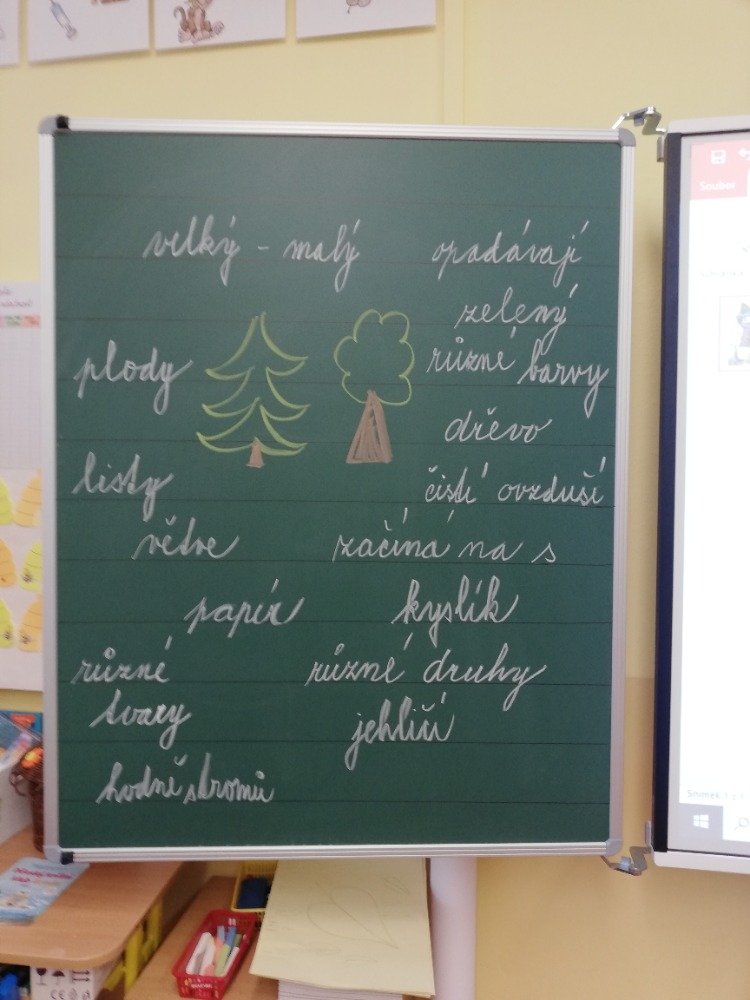 velký - malý
opadávají
zelený
plody
různé barvy
dřevo
listy
čistí ovzduší
větve
začíná na s
papír
kyslík
různé
různé druhy
tvary
jehličí
hodně stromů
Soubor
Snímek 1 z 1